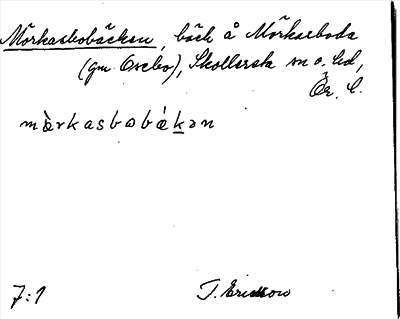 Mörkasbobäcken, bäck å Mörkasboda
(gm Osebo), Skollersta sn o. hd,
Ör. l.
mɷ̀rkasbobɛ́kən
7:1 T. Ericsson